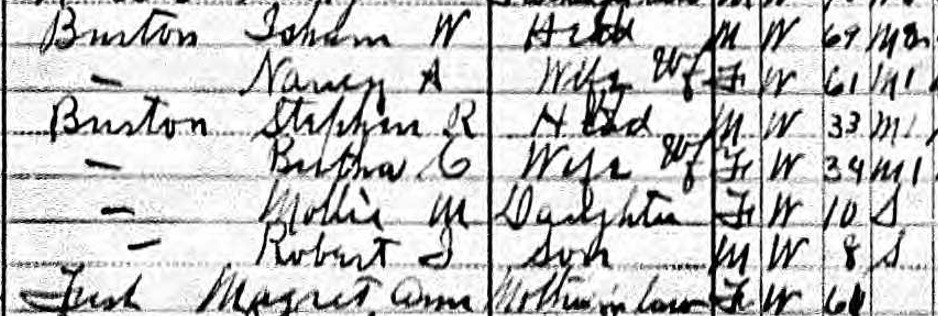 Burton Isham W Head M W 69 M2
— Nancy A Wife Wf F W 61 M1
Burton Stephen R Head M W 33 M1
— Bertha C Wife Wf F W 34 M1
— Mollie M Daughter F W 10 S
— Robert I Son M W 8 S
Magret Ann Mother in law F W